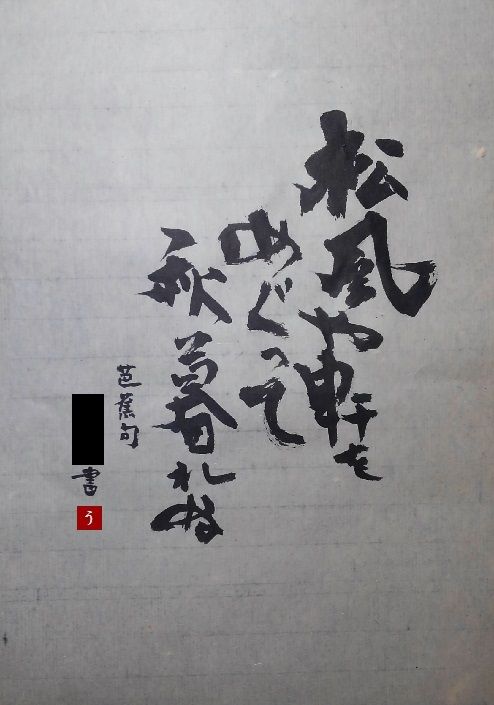 松風や軒を
めぐって
秋暮れぬ
芭蕉句
書
う